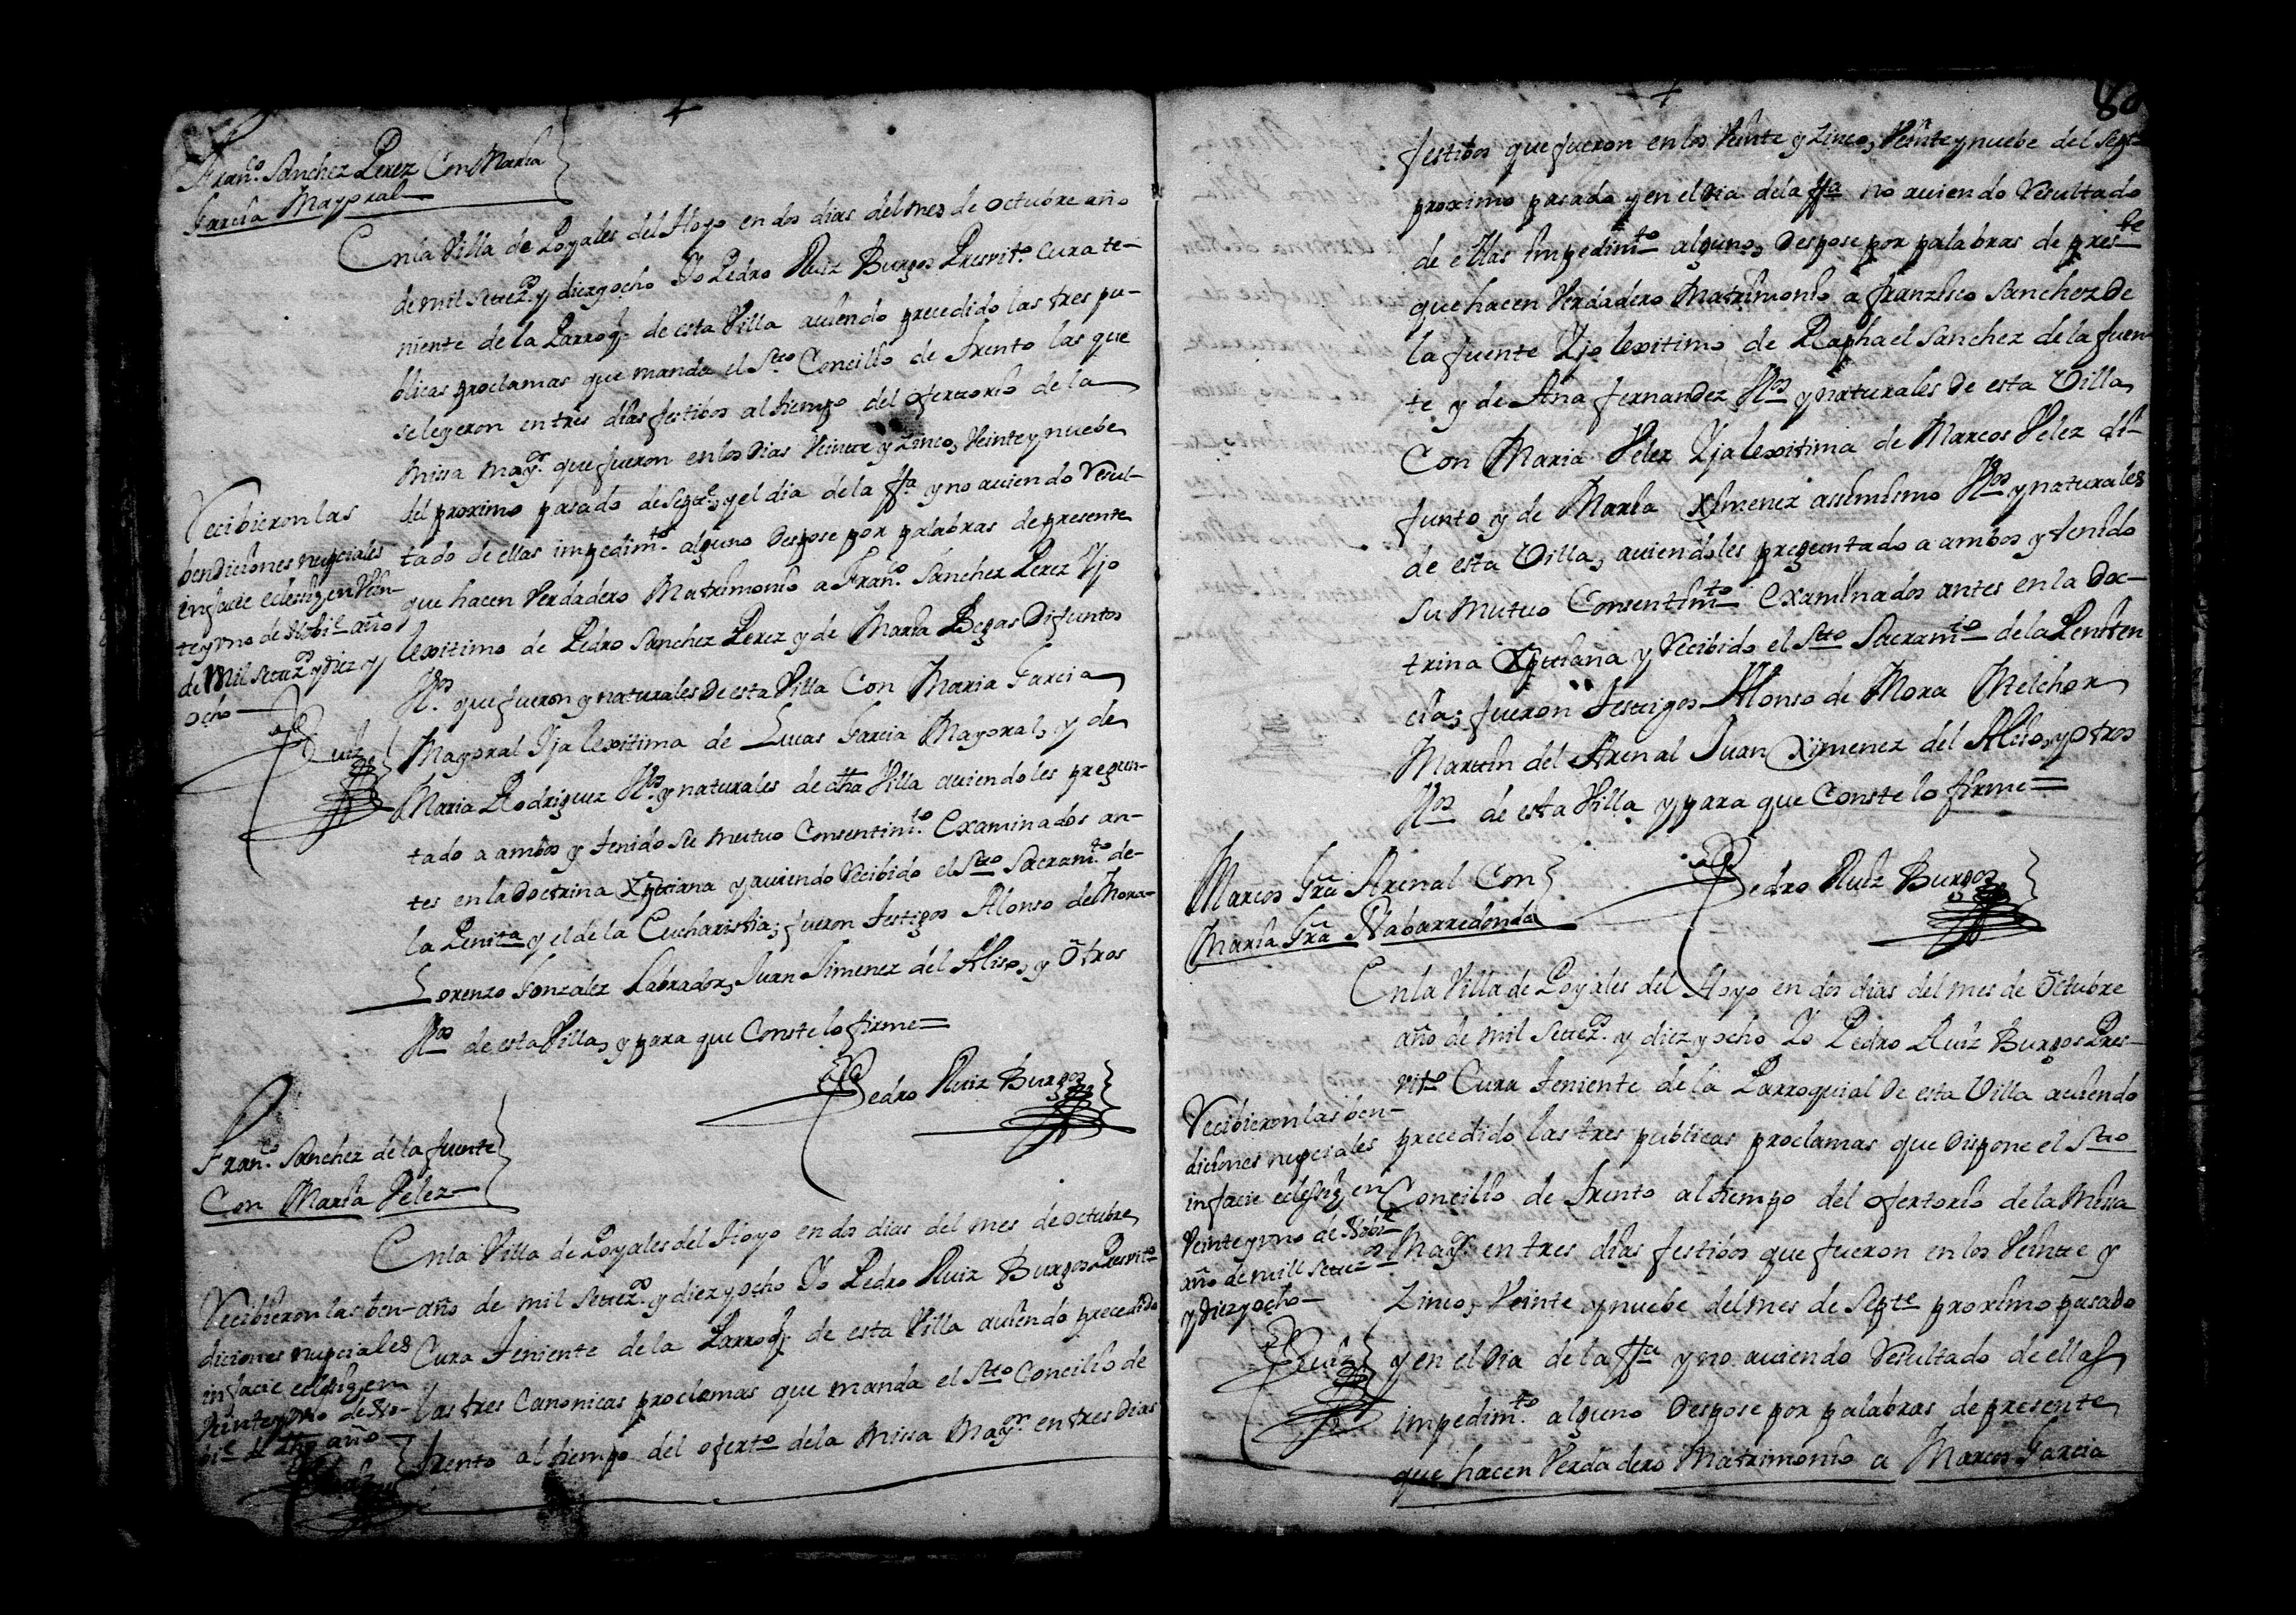 +
Fran.co Sanchez Perez Con Maria
Garcia Mayoral
En la Villa de Poyales del Hoyo en dos dias del mes de octubre año
de mil setez.os y diez y ocho Yo Pedro Ruiz Burgos Presvit.o Cura te-
niente de la Parroq.l de esta Villa auiendo precedido las tres pu-
blicas proclamas que manda el S.to Concilio de Trento las que
se leyeron en tres dias festibos al tiempo del ofertorio de la
Missa may.r que fueron en los dias Veinte y Zinco, Veinte y nuebe
del proximo pasado de Sept.e, y el dia de la ffa y no auiendo Resul-
tado de ellas impedim.to alguno Despose por palabras de presente
que hacen Verdadero Matrimonio a Fran.co Sanchez Perez Yjo
lexitimo de Pedro Sanchez Perez y de Maria Begas Difuntos
V.os que fueron y naturales de esta Villa Con Maria Garcia
Mayoral Yja lexitima de Lucas Garcia Mayoral, y de
Maria Rodriguez V.os y naturales de dha Villa auiendoles pregun-
tado a ambos y tenido su mutuo Consentim.to Examinados an-
tes en la doctrina Xptiana y auiendo Recibido el S.to Sacram.to de
la Penit.a y el de la Eucharistia; fueron testigos Alonso de Mora
Lorenzo Gonzalez Labrador, Juan Ximenez del Aliso, y otros
V.os de esta Villa, y para que Conste lo firme=
Pedro Ruiz Burgos
Recibieron las
bendiciones nupciales
in facie eclesiæ en Vein-
te y vno de Nobi.e año
de Mil setez.os y diez y
ocho
Ruiz
Fran.co Sanchez de la fuente
Con Maria Velez
En la Villa de Poyales del Hoyo en dos dias del mes de octubre
año de mil setez.os y diez y ocho Yo Pedro Ruiz Burgos Presvit.o
Cura Teniente de la Parroq.l de esta Villa auiendo precedido
las tres Canonicas proclamas que manda el S.to Concilio de
Trento al tiempo del ofert.o de la Missa May.r en tres Dias
Recibieron las ben-
diciones nupciales
in facie eclesiæ en
Veinte y vno de No-
bi.e de dho año
Ruiz
+
80
festibos que fueron en los Veinte y Zinco, Veinte y nuebe del Sept.e
proximo pasado y en el dia de la ffa no auiendo Resultado
de ellas Impedim.to alguno, Despose por palabras de pres.te
que hacen Verdadero Matrimonio a franzisco Sanchez De
la fuente Yjo lexitimo de Raphael Sanchez de la fuen
te y de Ana fernandez V.os y naturales de esta Villa
Con Maria Velez Yja lexitima de Marcos Velez di-
funto y de Maria Ximenez assimismo V.os y naturales
de esta Villa, auiendoles preguntado a ambos y tenido
su mutuo Consentim.to Examinados antes en la Doc-
trina Xptiana y Recibido el S.to Sacram.to de la Peniten
cia; fueron testigos Alonso de Mora Melchor
Martin del Arenal Juan Ximenez del Aliso, y otros
V.os de esta Villa y para que Conste lo firme=
Pedro Ruiz Burgos
Marcos Gra Arenal Con
Maria Gra Nabarredonda
En la Villa de Poyales del Hoyo en dos dias del mes de octubre
año de mil setez.os y diez y ocho Yo Pedro Ruiz Burgos Pres-
vit.o Cura teniente de la Parroquial De esta Villa auiendo
precedido las tres publicas proclamas que Dispone el S.to
Concilio de Trento al tiempo del ofertorio de la Missa
May.r en tres dias festibos que fueron en los Veinte y
Zinco, Veinte y nuebe del mes de Sept.e proximo pasado
y en el Dia de la ffa y no auiendo Resultado de ellas
impedim.to alguno Despose por palabras de presente
que hacen Verdadero Matrimonio a Marcos Garcia
Recibieron las ben-
diciones nupciales
in facie eclesiæ en
Veinte y vno de Nobi.e
año de mill setez.os
y diez y ocho
Ruiz